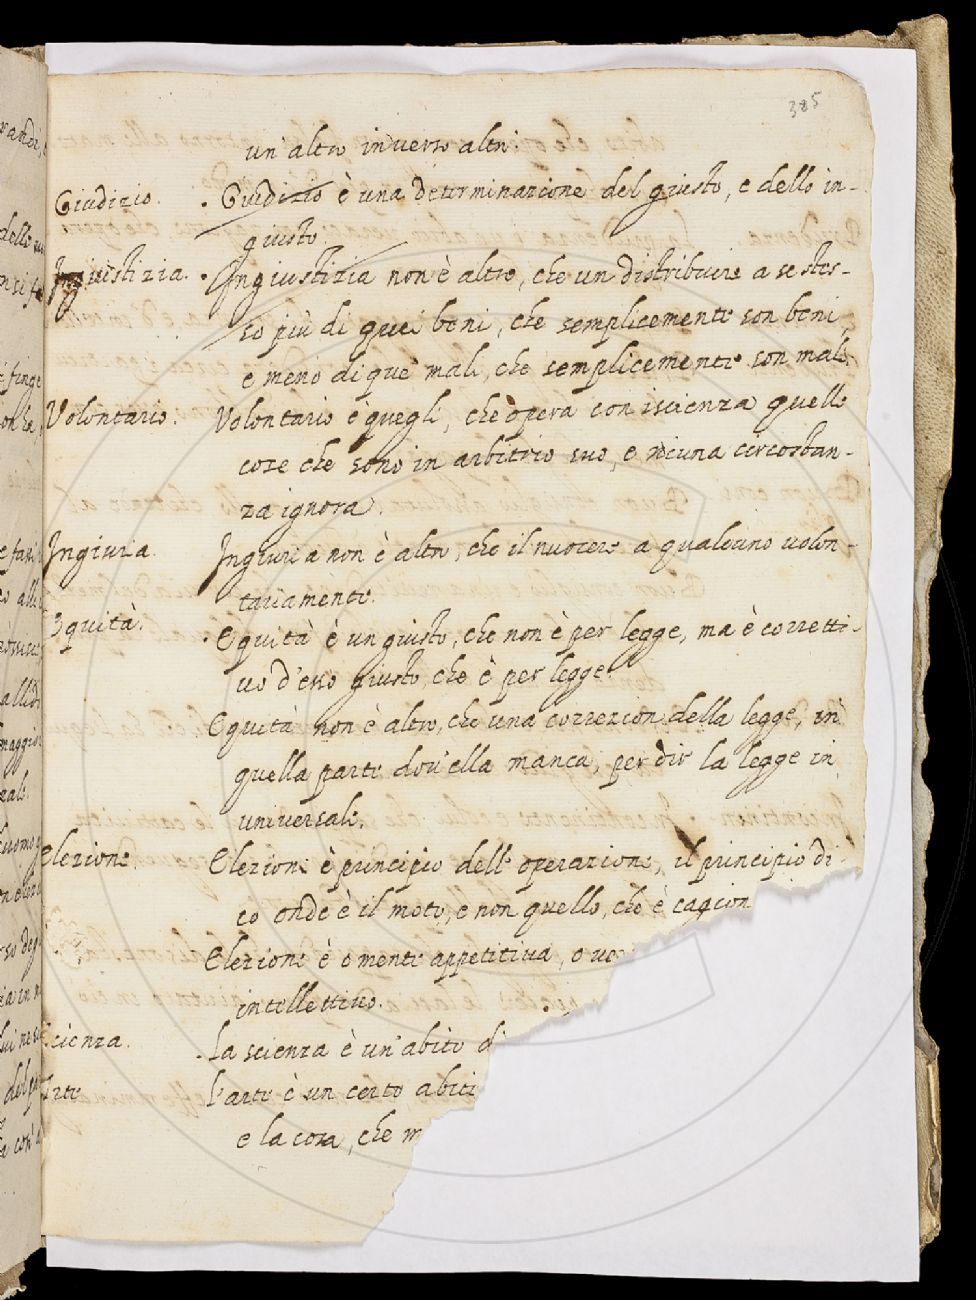 385
un' altro inverso altri.
Giudizio. Giudizio è una determinazione del giusto, e dello in-
giusto
Ingiustizia. Ingiustizia non è altro, che un distribuire a se stes-
so più di quei beni, che semplicemente son beni,
e meno di que' mali, che semplicemente son mali.
Volontario. Volontario è quegli, che opera con iscienza quelle
cose che sono in arbitrio suo, e niuna circostan-
za ignora.
Ingiuria. Ingiuria non è altro, che il nuocere a qualcuno volon-
tariamente.
Equità. Equità è un giusto, che non è per legge, ma è corretti-
vo d'esso giusto, che è per legge.
Equità non è altro, che una correzion della legge, in
quella parte dov'ella manca, per dir la legge in
universale.
Elezione Elezione è principio dell' operazione, il principio di-
co onde è il moto, e non quello, che è cagion
Elezione è o mente appetitiva, o ve
intellettivo.
Scienza. La scienza è un' abito d
Arte L'arte è un certo abit
e la cosa, che m